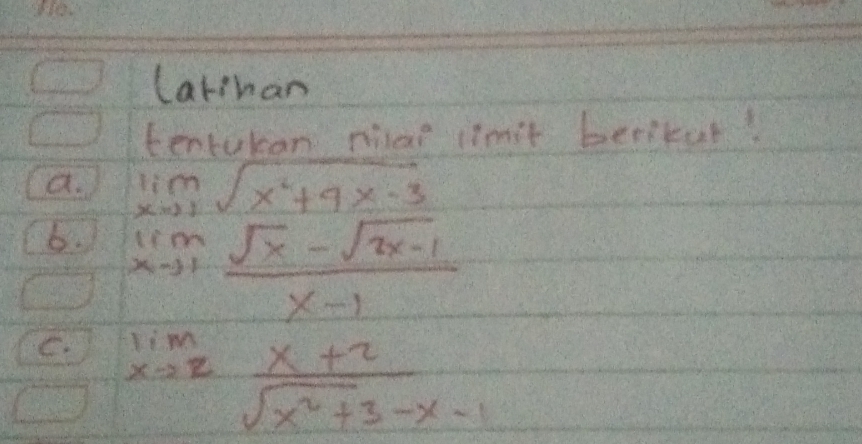 No.
Latihan
tentukan nilai limit berikut!
a. lim x→1 √(x²+9x-3)
b. lim x→1 (√x - √(2x-1)) / (x-1)
c. lim x→2 (x+2) / (√(x²+3)-x-1)